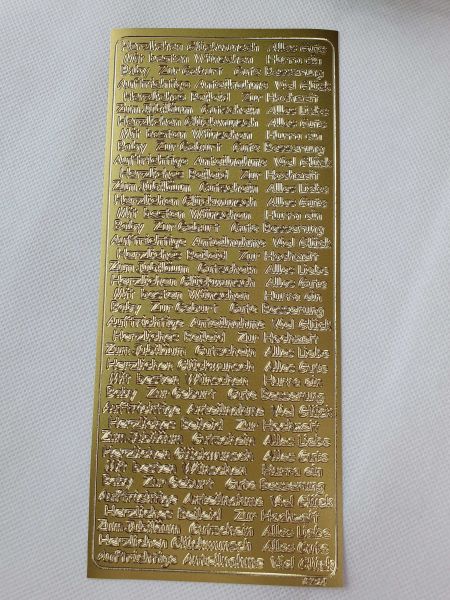 Herzlichen Glückwunsch Alles Gute
Mit besten Wünschen Hurra ein
Baby Zur Geburt Gute Besserung
Aufrichtige Anteilnahme Viel Glück
Herzliches Beileid Zur Hochzeit
Zum Jubiläum Gutschein Alles Liebe
Herzlichen Glückwunsch Alles Gute
Mit besten Wünschen Hurra ein
Baby Zur Geburt Gute Besserung
Aufrichtige Anteilnahme Viel Glück
Herzliches Beileid Zur Hochzeit
Zum Jubiläum Gutschein Alles Liebe
Herzlichen Glückwunsch Alles Gute
Mit besten Wünschen Hurra ein
Baby Zur Geburt Gute Besserung
Aufrichtige Anteilnahme Viel Glück
Herzliches Beileid Zur Hochzeit
Zum Jubiläum Gutschein Alles Liebe
Herzlichen Glückwunsch Alles Gute
Mit besten Wünschen Hurra ein
Baby Zur Geburt Gute Besserung
Aufrichtige Anteilnahme Viel Glück
Herzliches Beileid Zur Hochzeit
Zum Jubiläum Gutschein Alles Liebe
Herzlichen Glückwunsch Alles Gute
Mit besten Wünschen Hurra ein
Baby Zur Geburt Gute Besserung
Aufrichtige Anteilnahme Viel Glück
Herzliches Beileid Zur Hochzeit
Zum Jubiläum Gutschein Alles Liebe
Herzlichen Glückwunsch Alles Gute
Mit besten Wünschen Hurra ein
Baby Zur Geburt Gute Besserung
Aufrichtige Anteilnahme Viel Glück
Herzliches Beileid Zur Hochzeit
Zum Jubiläum Gutschein Alles Liebe
Herzlichen Glückwunsch Alles Gute
Aufrichtige Anteilnahme Viel Glück